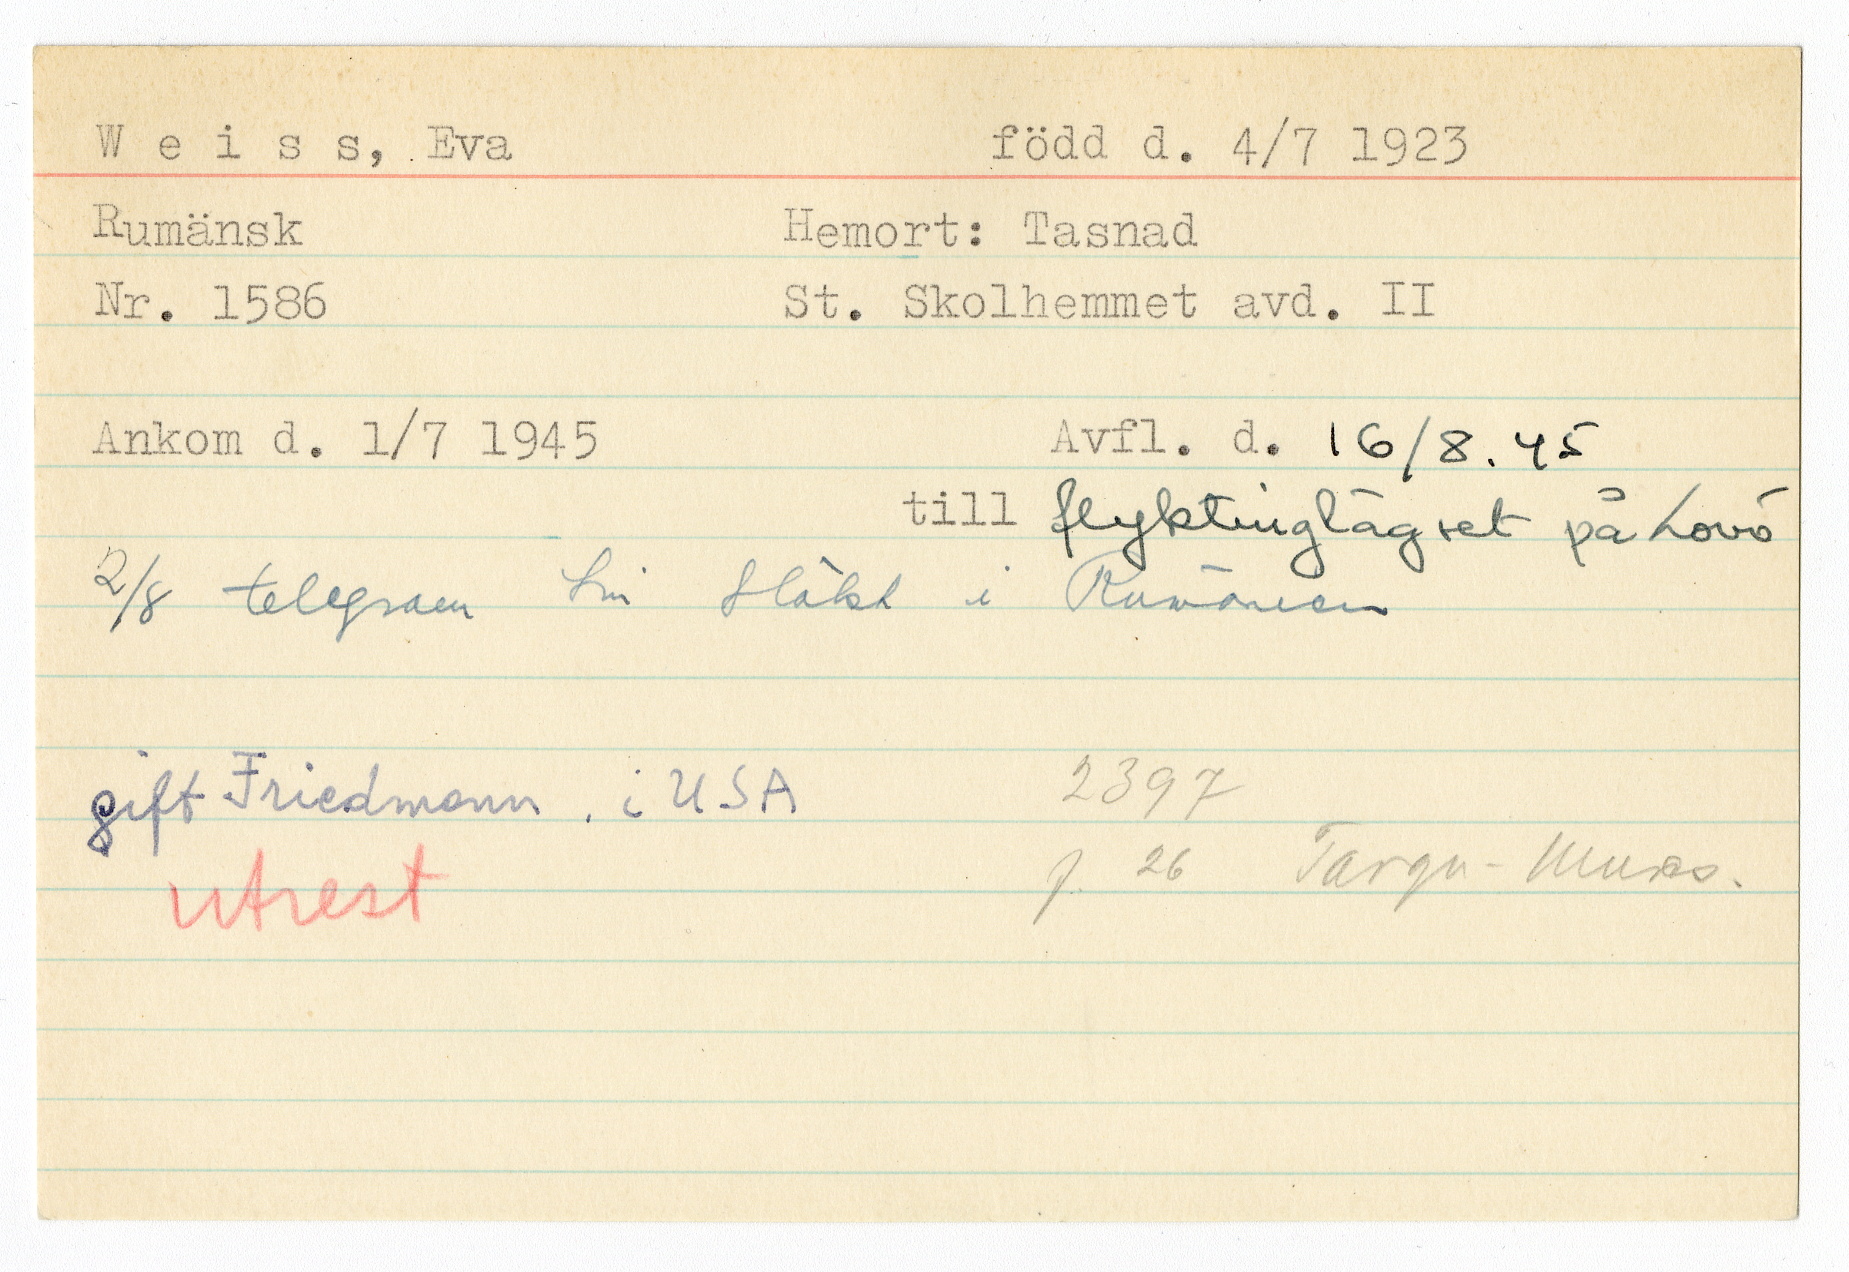 W e i s s, Eva född d. 4/7 1923
Rumänsk Hemort: Tasnad
Nr. 1586 St. Skolhemmet avd. II
Ankom d. 1/7 1945 Avfl. d. 16/8.45
till flyktinglägret på Lovö
2/8 telegram släkt i Rumänien
gift Friedmann, i USA 2397
utrest f. 26 Targu-Mures.